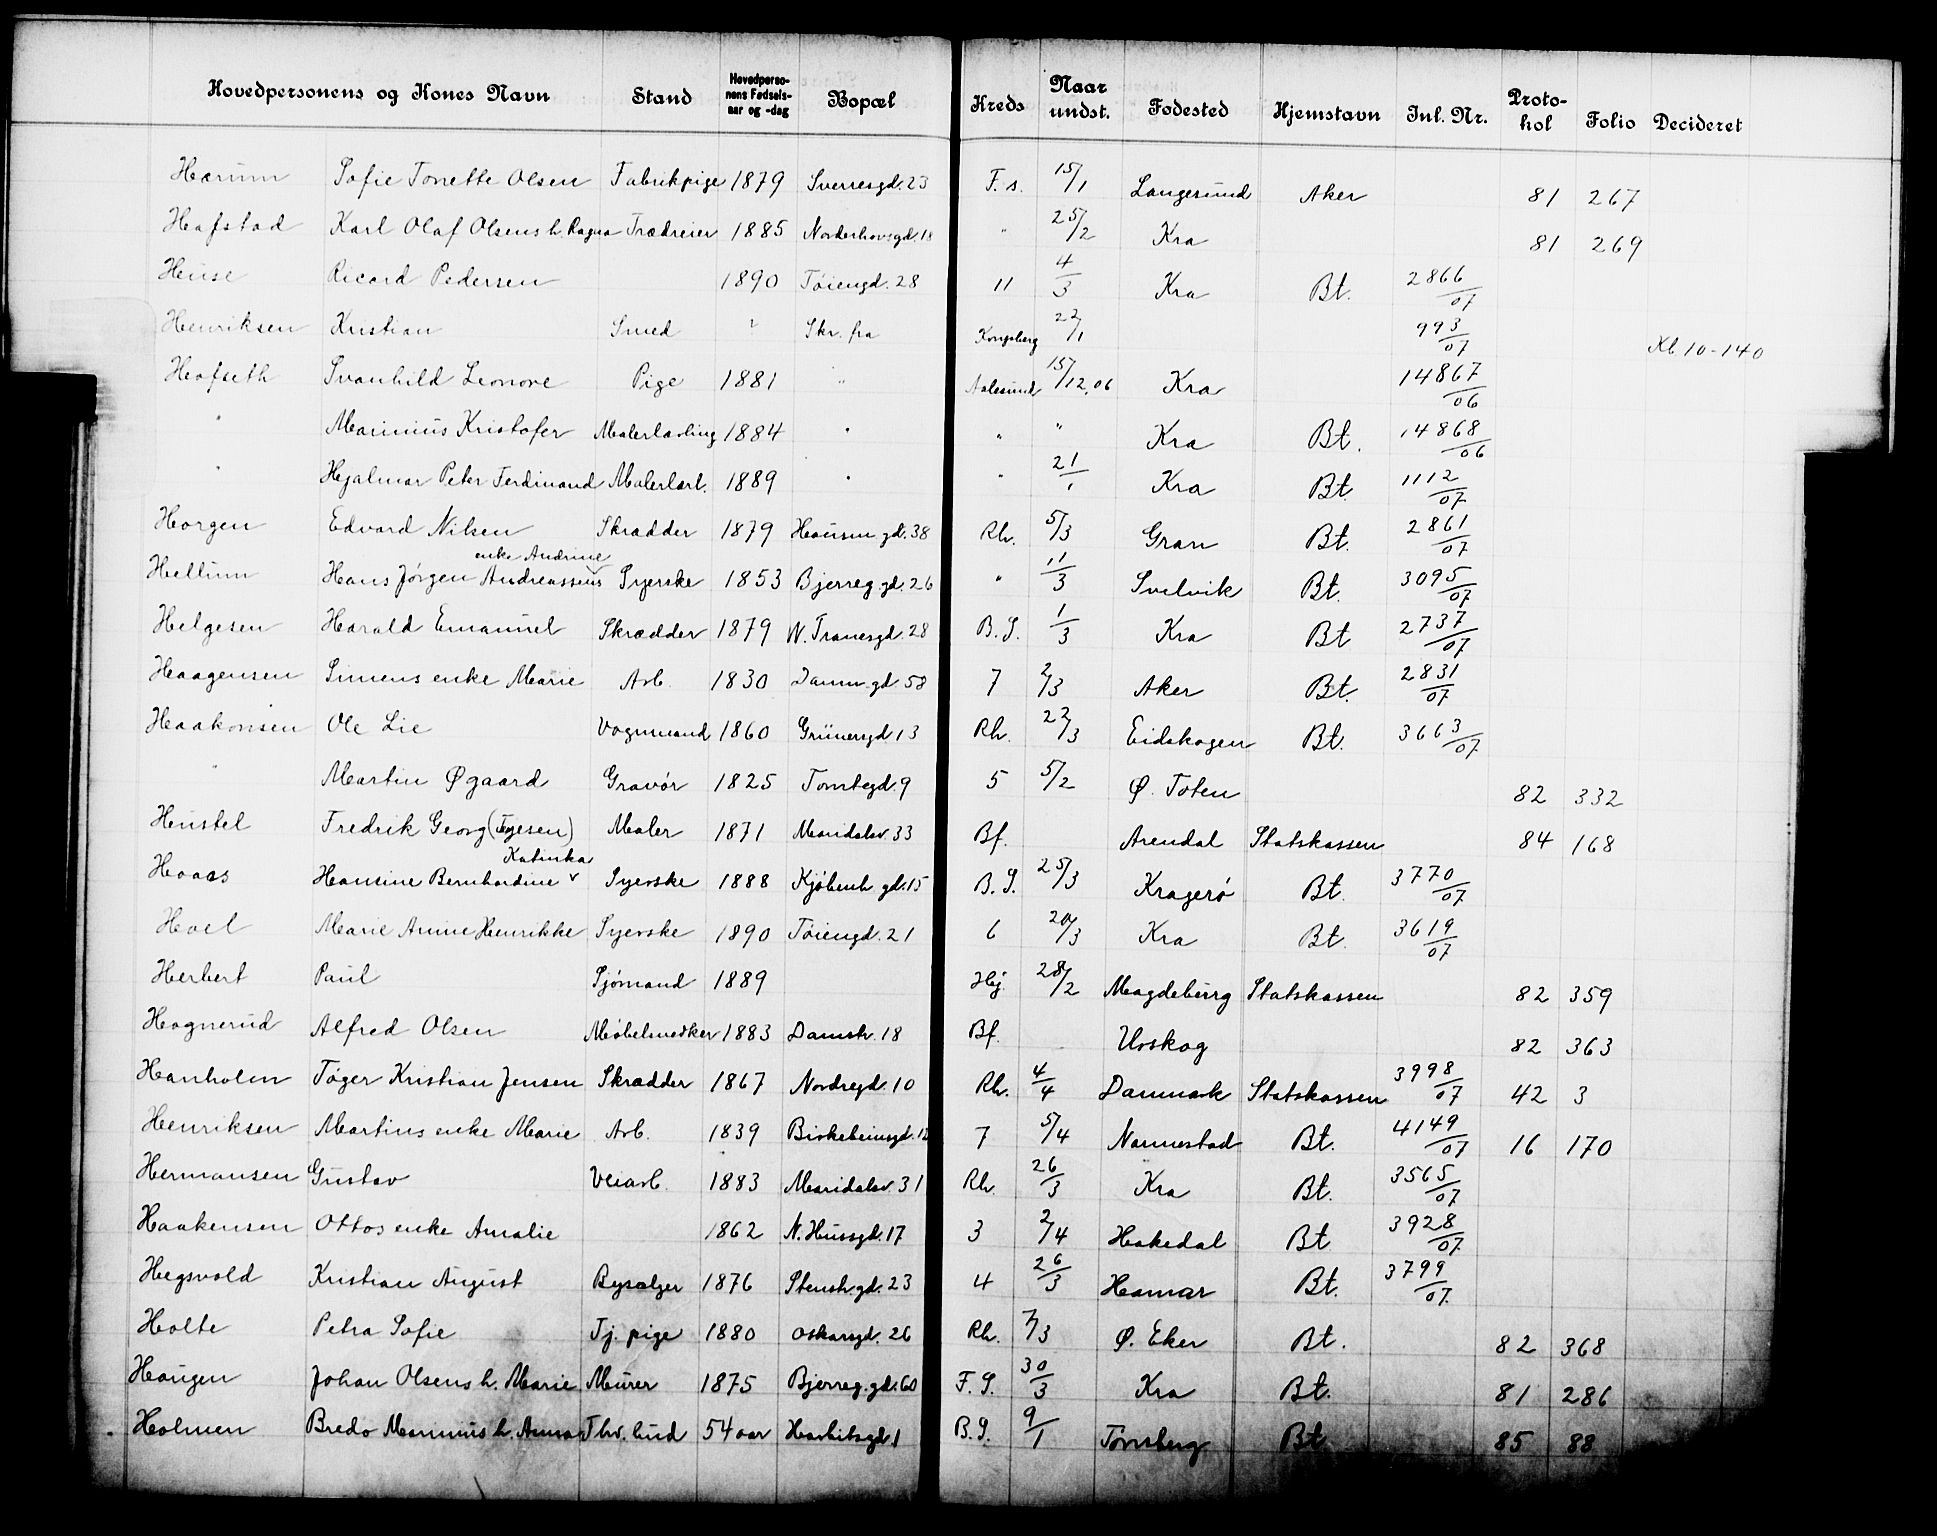 Hovedpersonens og Kones Navn Stand Hovedperso-nens Fødsels-aar og -dag Bopæl Kreds Naar undst. Fødested Hjemstavn Inl. Nr. Proto-kol Folio Decideret
Hærum Sofie Tonette Olsen Fabrikpige 1879 Sverresgd. 23 F. s. 15/1 Langesund Aker 81 267
Hafstad Karl Olaf Olsens h. Ragna Trædreier 1885 Norderhovsgd. 18 " 25/2 Kra 81 269
Huse Ricard Pedersen 1890 Tøiengd. 28 11 4/3 Kra Bt. 2866/07
Henriksen Kristian Smed ? Skr. fra Kongsberg 22/1 993/07 Kl. 10-140
Hafseth Svanhild Leonore Pige 1881 " Aalesund 15/12.06 Kra 14867/06
" Marinius Kristofer Malerlærling 1884 " " " Kra Bt. 14868/06
" Hjalmar Peter Ferdinand Malerlærl. 1889 " " 21/1 Kra Bt. 1112/07
Horgen Edvard Nilsen Skrædder 1879 Hausm gd. 38 Rh. 5/3 Gran Bt. 2861/07
Hellum Hans Jørgen Andreassens enke Andrine Syerske 1853 Bjerreg. gd. 26 " 11/3 Svelvik Bt. 3095/07
Helgesen Harald Emanuel Skrædder 1879 W. Tranesgd. 28 B. S. 1/3 Kra Bt 2737/07
Haagensen Simens enke Marie Arb. 1830 Danm. gd 58 7 2/3 Aker Bt. 2831/07
Haakonsen Ole Lie Vognmand 1860 Grünersgd. 13 Rh. 22/3 Eidskogen Bt. 3663/07
" Martin Øgaard Gravør 1825 Tomtegd. 9 5 5/2 Ø. Toten 82 332
Hustel Fredrik Georg Maler 1871 Maridalsv. 33 Bf. Arendal Statskassen 84 168
Haaas Hansine Bernhardine Katinka Syerske 1888 Kjøbenh. gd. 15 B. S. 25/3 Kragerø Bt. 3770/07
Hoel Marie Amine Henrikke Syerske 1890 Tøiengd. 21 6 20/3 Kra Bt. 3619/07
Herbert Paul Sjømand 1889 Hj. 28/2 Magdeburg Statskassen 82 359
Hagnerud Alfred Olsen Møbelsnedker 1883 Damstr. 18 Bf. Urskog 82 363
Hanholm Tøger Kristian Jensen Skrædder 1867 Nordregd. 10 Rh. 4/4 Danmark Statskassen 3998/07 42 3
Henriksen Martins enke Marie Arb. 1839 Birkebeinsgd. 12 7 5/4 Nannestad Bt. 4149/07 16 170
Hermansen Gustav Veiarb. 1883 Maridalsv. 31 Rh. 26/3 Kra Bt. 3565/07
Haakensen Ottos enke Amalie 1862 N. Hussgd. 17 3 2/4 Hakedal Bt 3928/07
Hegsvold Kristian August Bysælger 1876 Stenstr. gd. 23 4 26/3 Hamar Bt. 3799/07.
Holte Petra Sofie Tj. pige 1880 Oskarsgd. 26 Rh. 7/3 Ø. Eker Bt. 82 368
Haugen Johan Olsens h. Marie Murer 1875 Bjerreg. gd. 60 F. S. 30/3 Kra Bt. 81 286
Holmen Bredo Marinius h. Anna Thv. bud 54 aar Havbitsgd. 1 B. S. 9/1 Tønsberg Bt 85 88